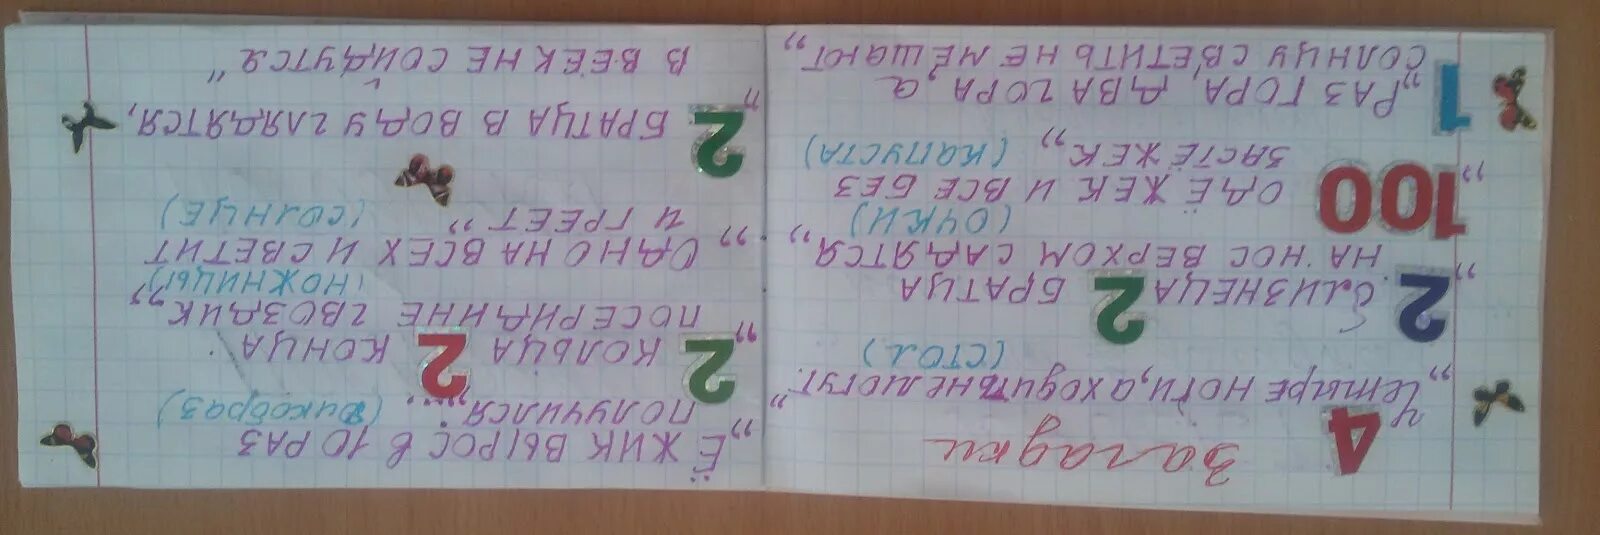 Загадки
4
„Четыре ноги, а ходить не могут."
(СТОЛ)
2 „БЛИЗНЕЦА 2 БРАТЦА
НА НОС ВЕРХОМ САДЯТСЯ„
(ОЧКИ)
100 „ОДЁЖЕК И ВСЕ БЕЗ
ЗАСТЁЖЕК„ (КАПУСТА)
1 „РАЗ ГОРА, ДВА ГОРА, а
СОЛНЦУ СВЕТИТЬ НЕ МЕШАЮТ„
„ЁЖИК ВЫРОС В 10 РАЗ
ПОЛУЧИЛСЯ..." (Дикобраз)
2 „КОЛЬЦА 2 КОНЦА
ПОСЕРИДИНЕ ГВОЗДИК„
(НОЖНИЦЫ)
„ОДНО НА ВСЕХ И СВЕТИТ
И ГРЕЕТ„ (СОЛНЦЕ)
2 „БРАТЦА В ВОДУ ГЛЯДЯТСЯ,
В ВЕЕК НЕ СОЙДУТСЯ"